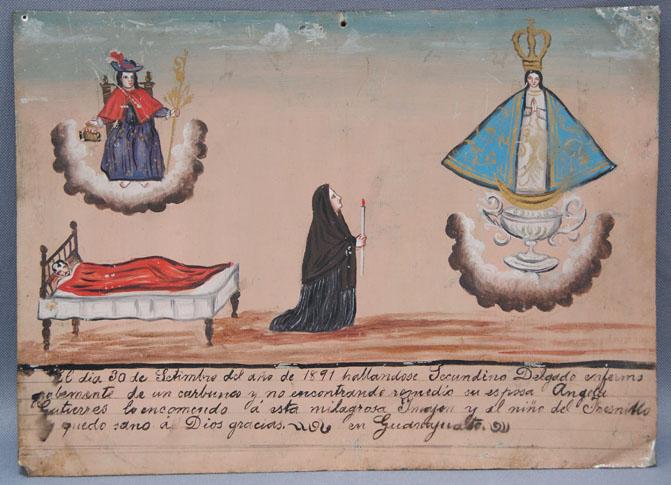 El dia 30 de Setimbre del año de 1891 hallandose Secundino Delgado enfermo
gabemente de un carbunco y no encontrando remedio su esposa Angela
Gutierres lo encomendo á esta milagrosa Imagen y al niño del Fresnillo
y quedo sano á Dios gracias. en Guanajuato.